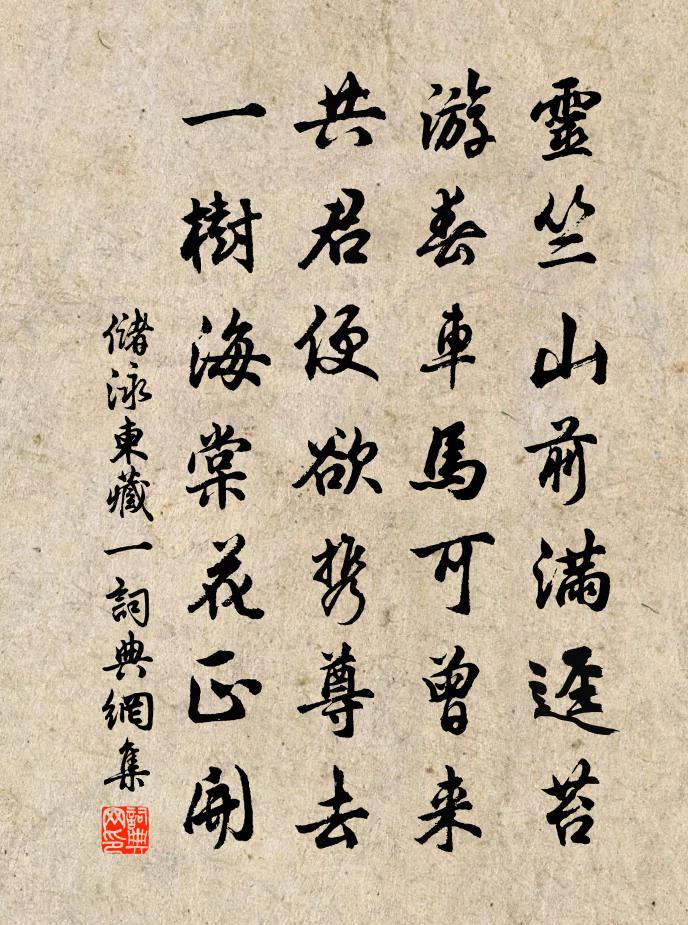 靈竺山前滿逕苔
游春車馬可曾來
共君便欲携尊去
一樹海棠花正開
儲泳東藏一詞典網集
詞典网印